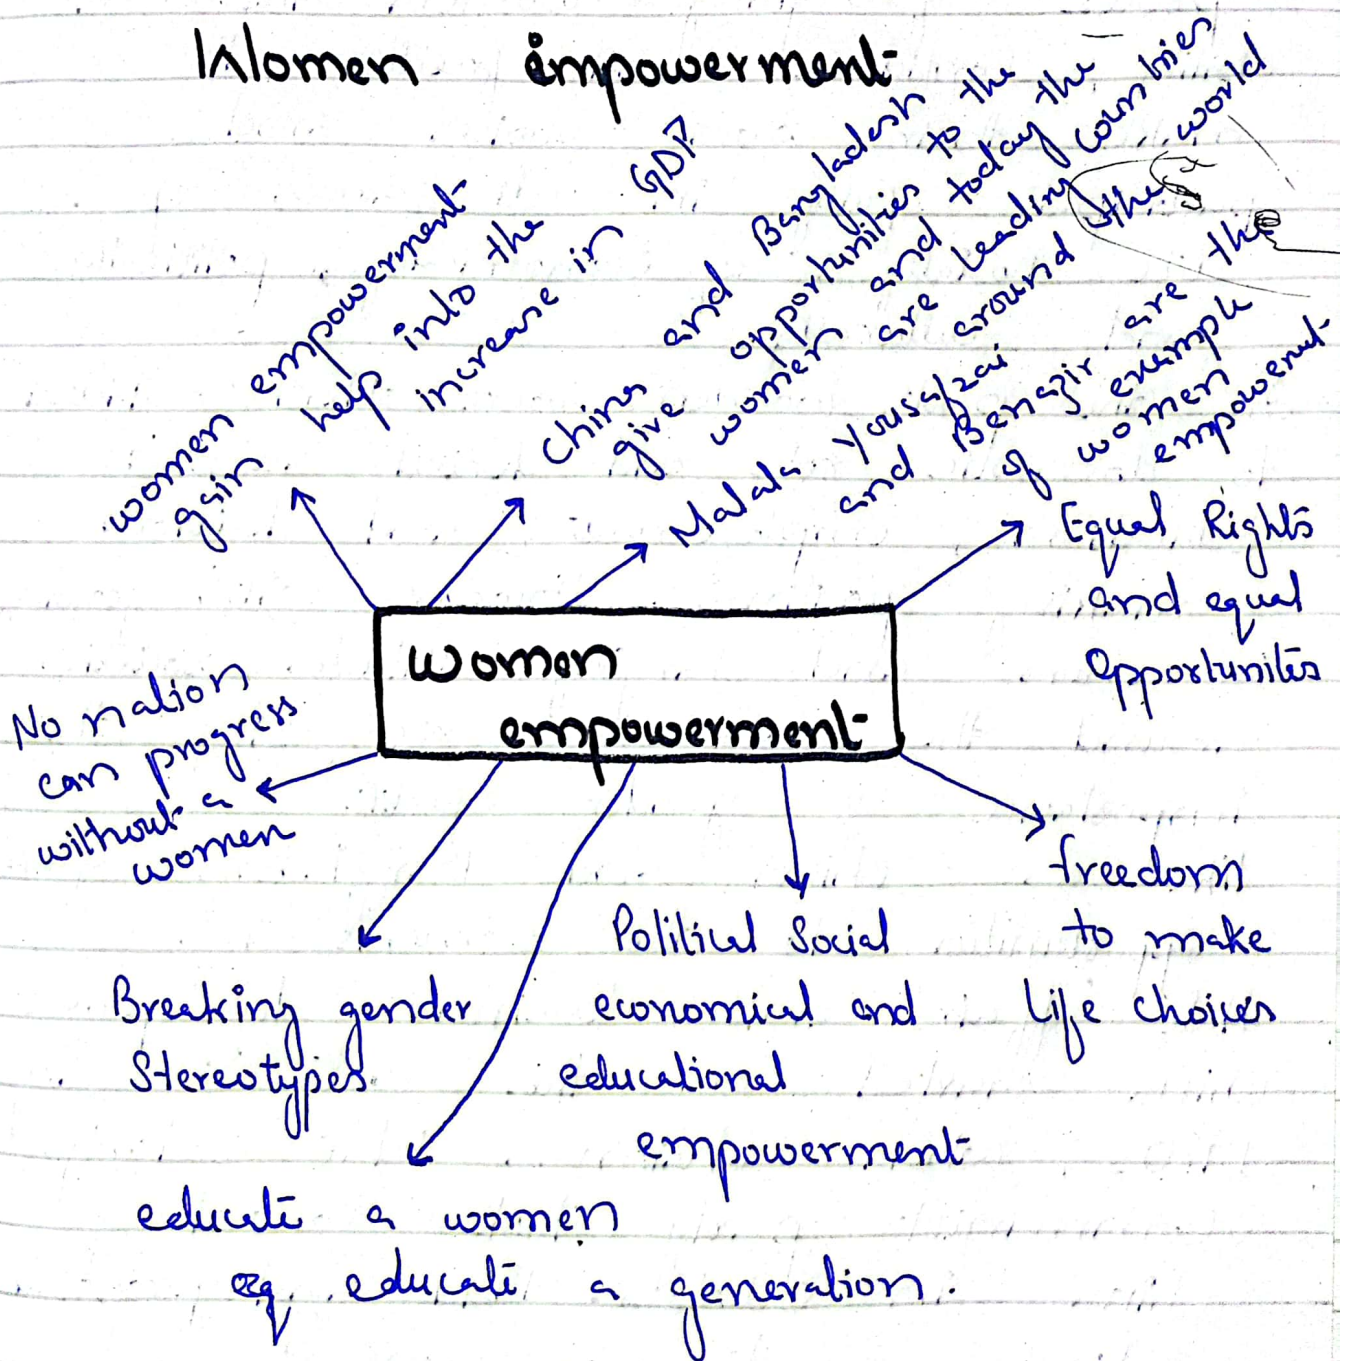 Women empowerment
women empowerment
gain help into the
increase in GDP
China and Bangladesh
give opportunities to the
women and today the
women are leading countries
around the world
Malala Yousafzai
and Benazir are the
of example
women
empowerment
Equal Rights
and equal
opportunites
women
empowerment
No nation
can progress
without a
women
Breaking gender
Stereotypes
educate a women
educate a generation.
Political Social
economical and
educational
empowerment
freedom
to make
life choices